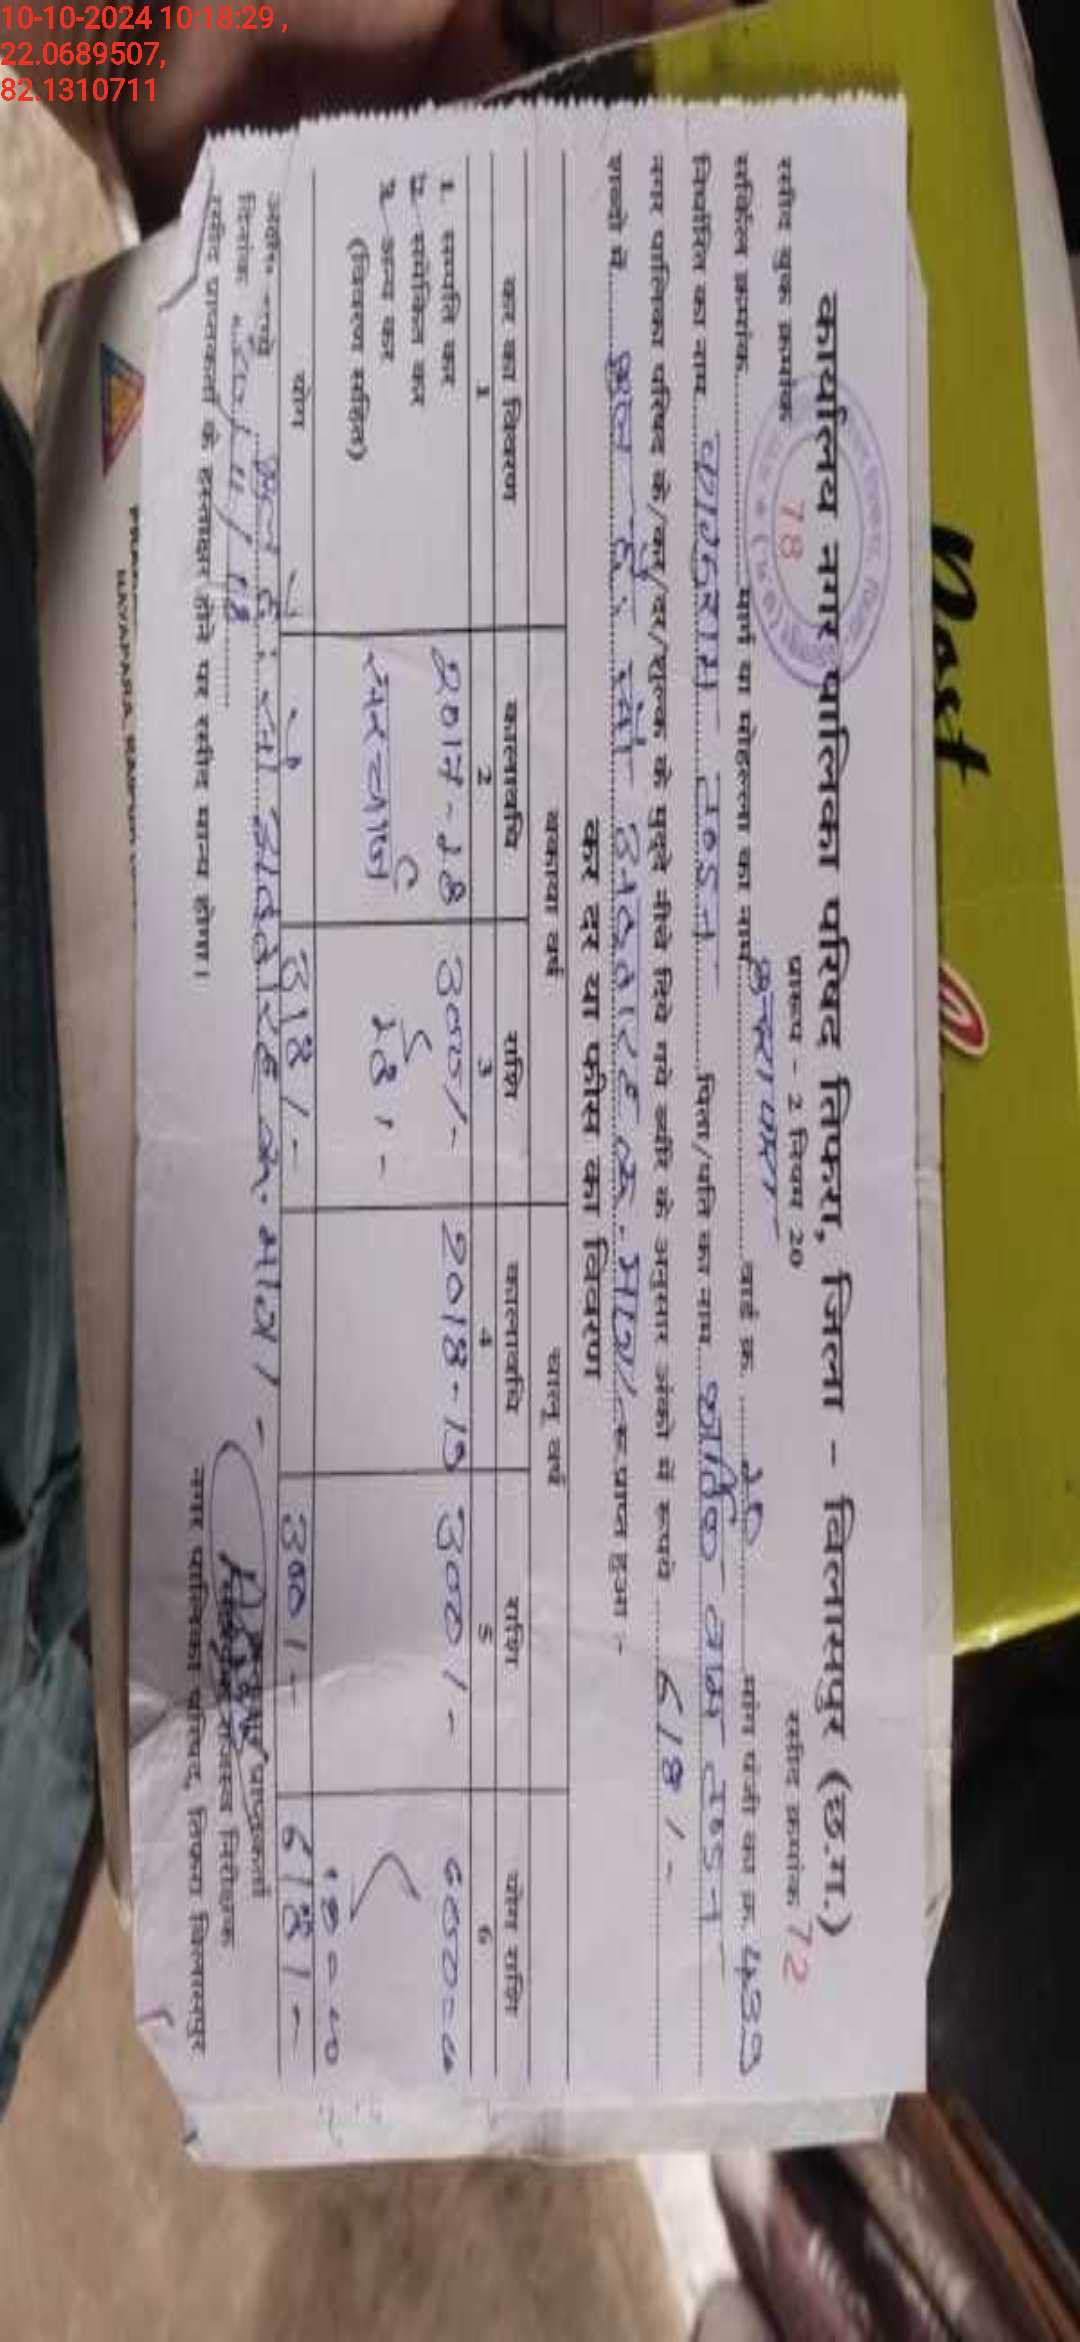 10-10-2024 10:18:29 ,
22.0689507,
82.1310711
कार्यालय नगर पालिका परिषद तिफरा, जिला - बिलासपुर (छ.ग.)
रसीद बुक क्रमांक 78 प्रारूप - 2 नियम 20 रसीद क्रमांक 72
सर्किल क्रमांक............मार्ग या मोहल्ला का नाम............वार्ड क्र. 20 मांग पंजी का क्र. 439
निर्धारित का नाम टण्डन पिता/पति का नाम टण्डन
नगर पालिका परिषद के/कर/दर/शुल्क के मुद्दे नीचे दिये गये ब्यौरे के अनुसार अंको में रूपये 618/-
शब्दों में छः सौ अठ्ठारह रू. मात्र/रू प्राप्त हुआ -
कर दर या फीस का विवरण
बकाया वर्ष चालू वर्ष
कर का विवरण कालावधि राशि कालावधि राशि योग राशि
1 2 3 4 5 6
1. सम्पत्ति कर 2017-18 300/- 2018-19 300/- 600=00
2. समेकित कर
3. अन्य कर सरचार्ज 18/-
(विवरण सहित) 18=00
योग 318/- 300/- 618/-
दिनांक 20/11/18
रसीद प्राप्तकर्ता के हस्ताक्षर होने पर रसीद मान्य होगा।
राजस्व निरीक्षक
नगर पालिका परिषद, तिफरा बिलासपुर
NAYAPARA, RAIPUR